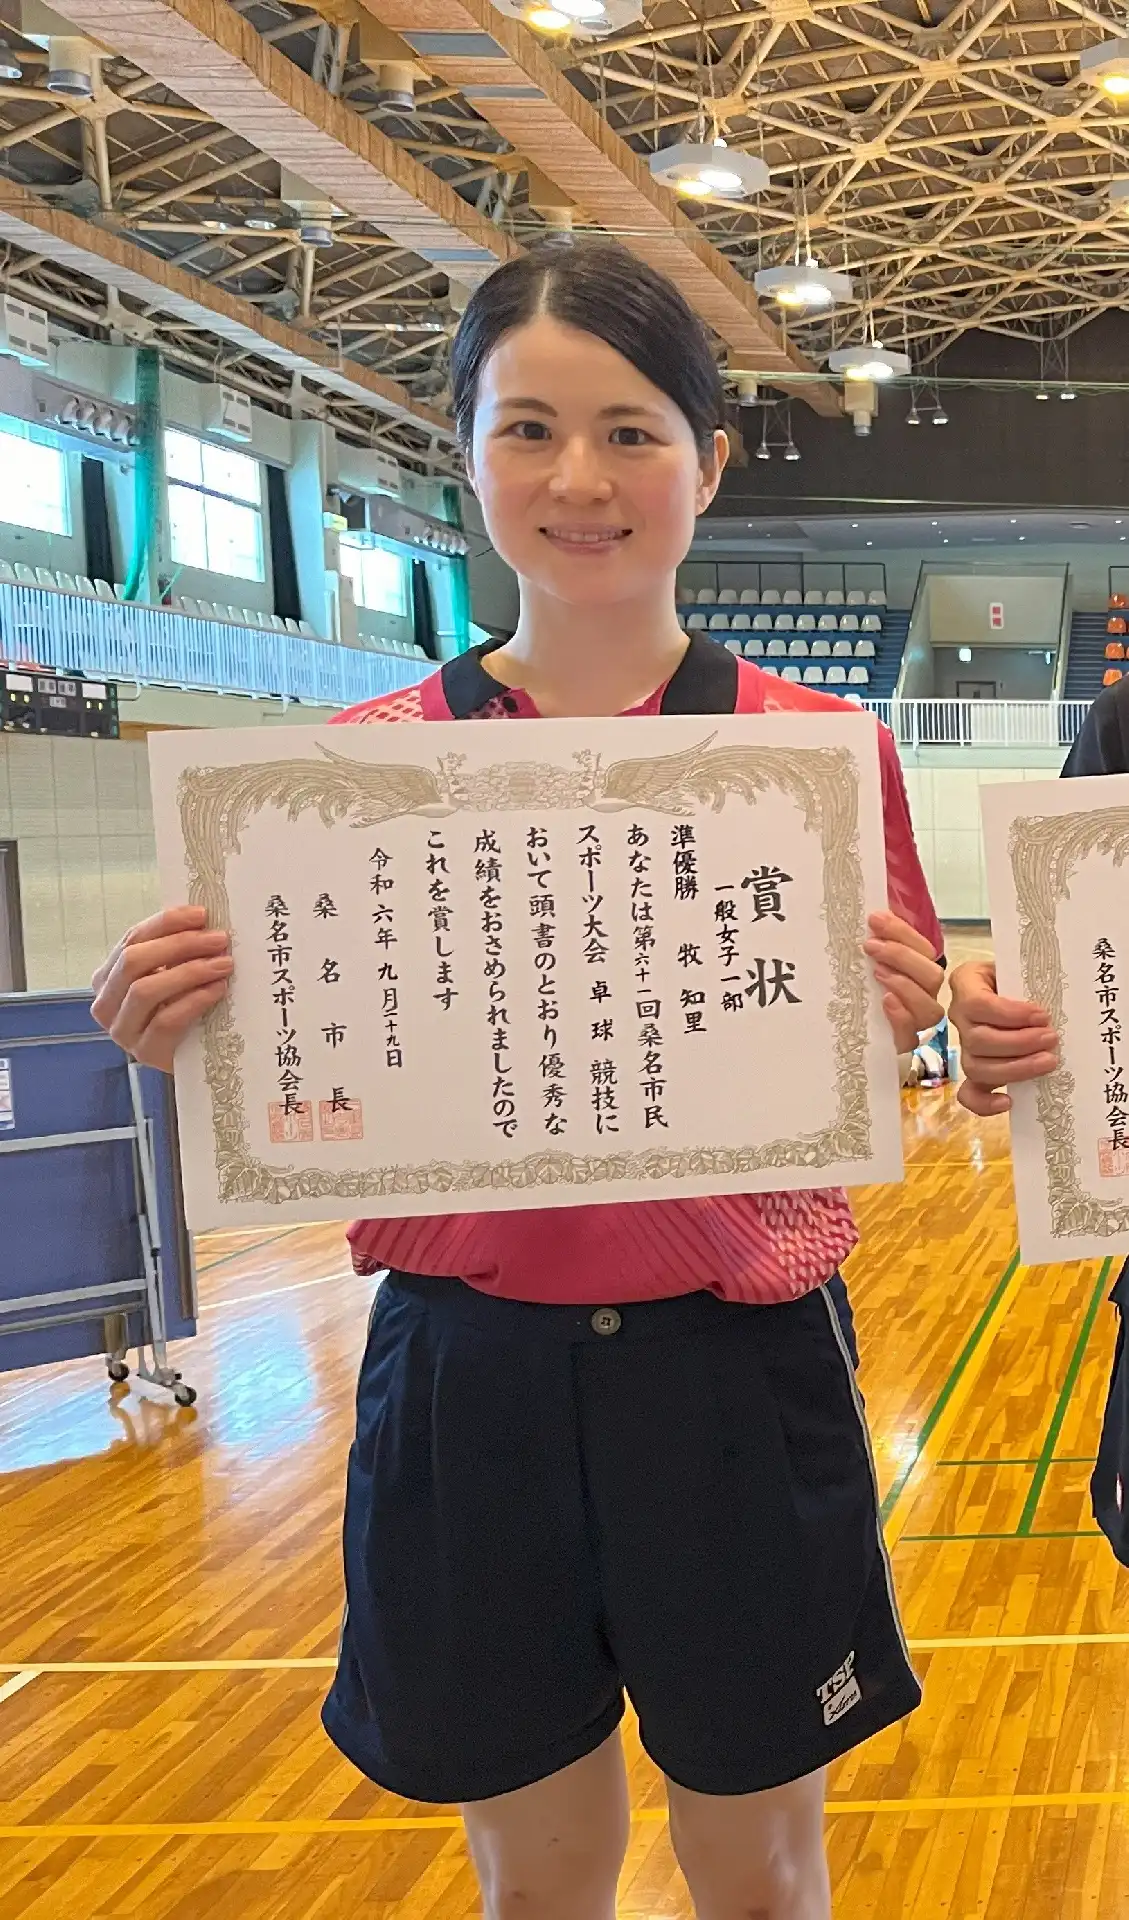 賞状
一般女子一部
準優勝 牧 知里
あなたは第六十一回桑名市民
スポーツ大会 卓球 競技に
おいて頭書のとおり優秀な
成績をおさめられましたので
これを賞します
令和六年 九月二十九日
桑名市長
桑名市スポーツ協会長
桑名市スポーツ協会長
TSP